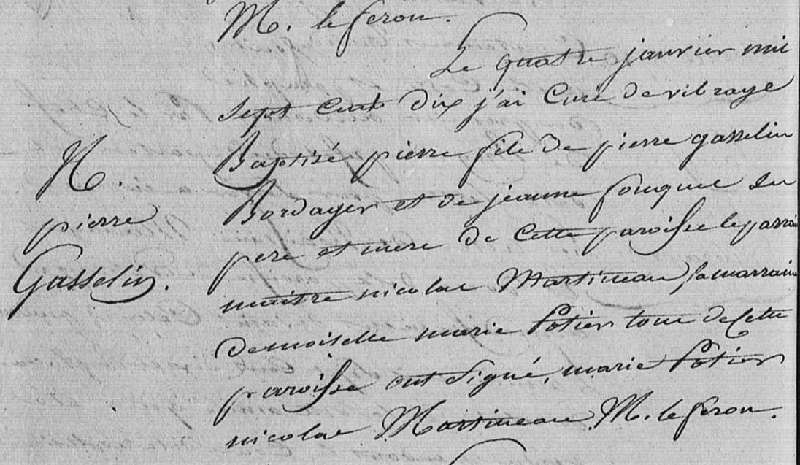 M. le feron.
Le quatre janvier mil
sept cent dix j'ai Curé de vibraye
Baptisé pierre fils de pierre gasselin
Bordager et de jeanne fouquee ses
pere et mere de Cette paroisse le parrain
maitre nicolas Martineau la marraine
demoiselle marie Potier tous de Cette
paroisse ont Signé, marie Potier
nicolas Martineau M. le feron.
N.
pierre
Gasselin.